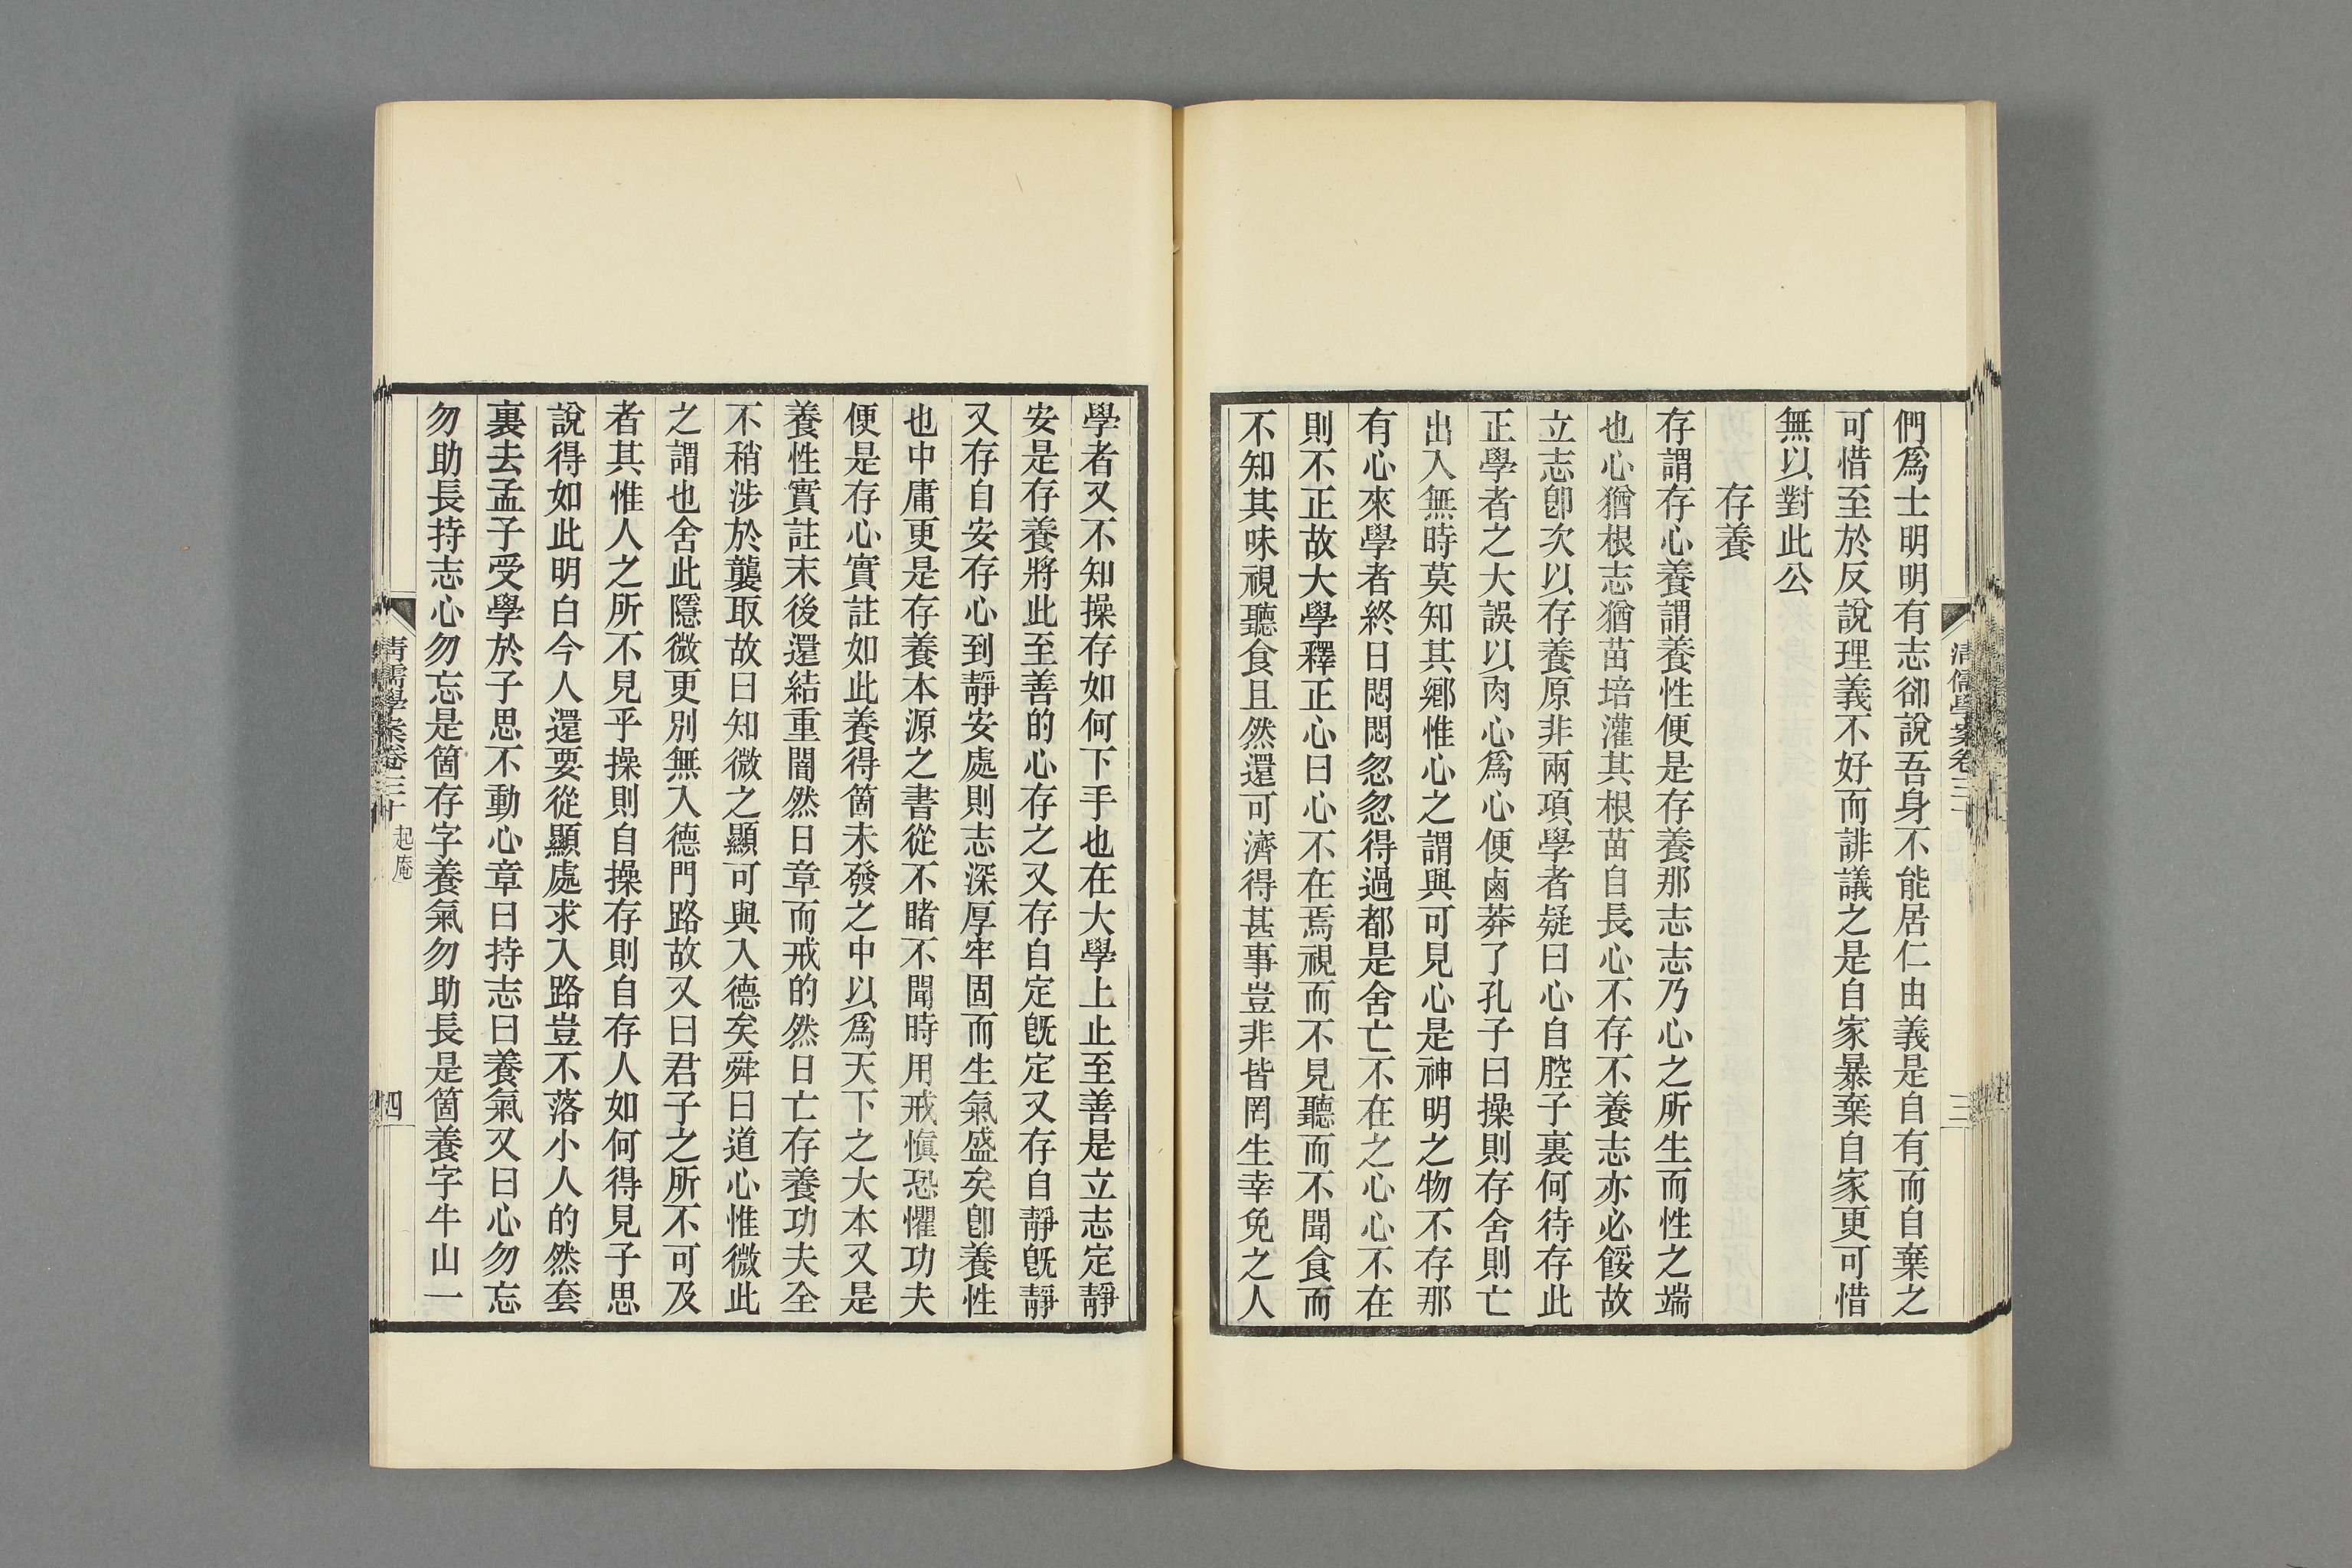 們爲士明明有志卻說吾身不能居仁由義是自有而自棄之
可惜至於反說理義不好而誹議之是自家暴棄自家更可惜
無以對此公
存養
存謂存心養謂養性便是存養那志志乃心之所生而性之端
也心猶根志猶苗培灌其根苗自長心不存不養志亦必餒故
立志卽次以存養原非兩項學者疑曰心自腔子裏何待存此
正學者之大誤以肉心爲心便鹵莽了孔子曰操則存舍則亡
出入無時莫知其鄉惟心之謂與可見心是神明之物不存那
有心來學者終日悶悶忽忽得過都是舍亡不在之心心不在
則不正故大學釋正心曰心不在焉視而不見聽而不聞食而
不知其味視聽食且然還可濟得甚事豈非皆罔生幸免之人
清儒學案卷三十
三
學者又不知操存如何下手也在大學上止至善是立志定靜
安是存養將此至善的心存之又存自定旣定又存自靜旣靜
又存自安存心到靜安處則志深厚牢固而生氣盛矣卽養性
也中庸更是存養本源之書從不睹不聞時用戒愼恐懼功夫
便是存心實註如此養得箇未發之中以爲天下之大本又是
養性實註末後還結重闇然日章而戒的然日亡存養功夫全
不稍涉於襲取故曰知微之顯可與入德矣舜曰道心惟微此
之謂也舍此隱微更別無入德門路故又曰君子之所不可及
者其惟人之所不見乎操則自操存則自存人如何得見子思
說得如此明白今人還要從顯處求入路豈不落小人的然套
裏去孟子受學於子思不動心章曰持志曰養氣又曰心勿忘
勿助長持志心勿忘是箇存字養氣勿助長是箇養字牛山一
清儒學案卷三十
起庵
四